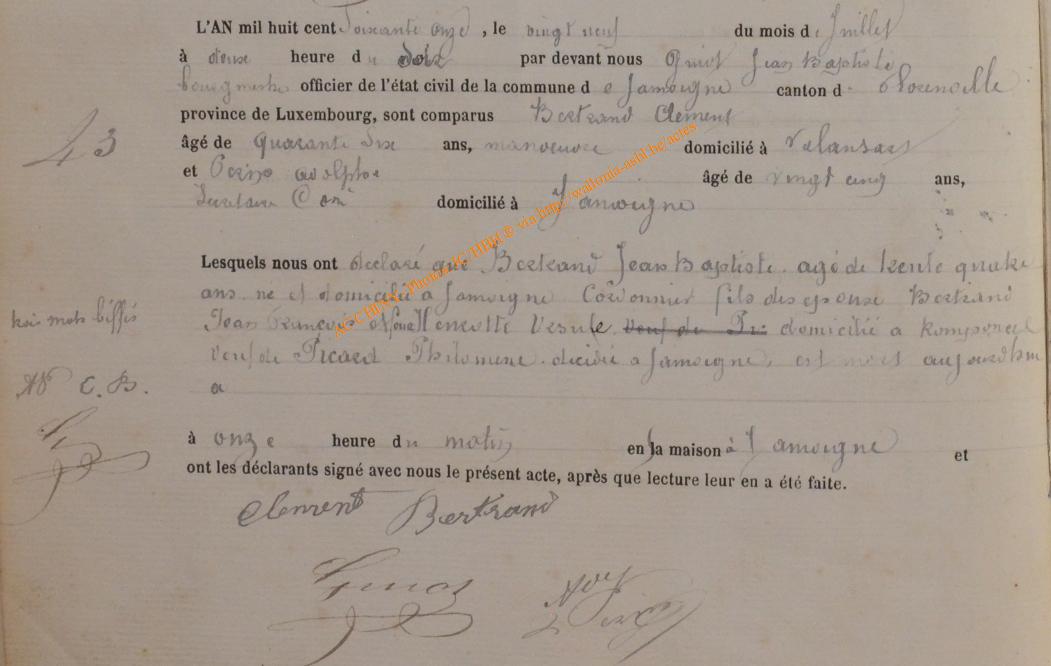 L'AN mil huit cent Soixante onze, le vingt neuf du mois de Juillet
à deux heure du soir par devant nous Guiot Jean Baptiste
bourgmestre officier de l'état civil de la commune de Jamoigne canton de florenville
province de Luxembourg, sont comparus Bertrand Clement
43
âgé de quarante Six ans, manoeuvre domicilié à Valansart
et adolphe âgé de vingt cinq ans,
Secretaire domicilié à Jamoigne
Lesquels nous ont declaré que Bertrand Jean Baptiste agé de trente quatre
ans né et domicilié a Jamoigne Cordonnier fils des epoux Bertrand
trois mots biffés
Jean François et Henrotte Ursule veuf de Pi domicilié a
veuf de Picard Philomene decidée a Jamoigne, est mort aujourdhui
AP C. B.
a
à onze heure du matin en la maison à Jamoigne et
ont les déclarants signé avec nous le présent acte, après que lecture leur en a été faite.
Clement Bertrand
Guiot
ACCHENNE Photos IC HBH © via http://wallonia-asbl.be/actes